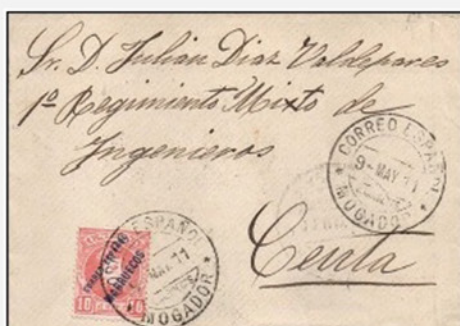 Sr. D. Julián Diaz Valdepares
1º Regimiento Mixto de
Ingenieros
CORREO ESPAÑOL
9-MAY.11
MOGADOR
Ceuta
ESPAÑOL
MAY.11
MOGADOR
MARRUECOS
10 10